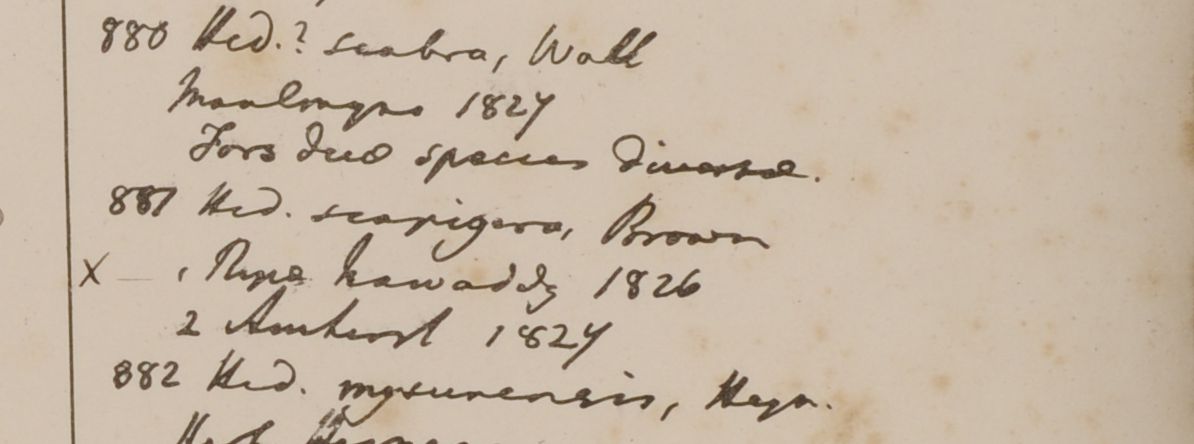 880 Hed.? scabra, Wall
Maulmyne 1827
Fors duae species diversae.
881 Hed. scapigera, Brown
X — 1 Ripa Irawaddy 1826
2 Amherst 1827
882 Hed. mysurensis, Heyn.
Herb